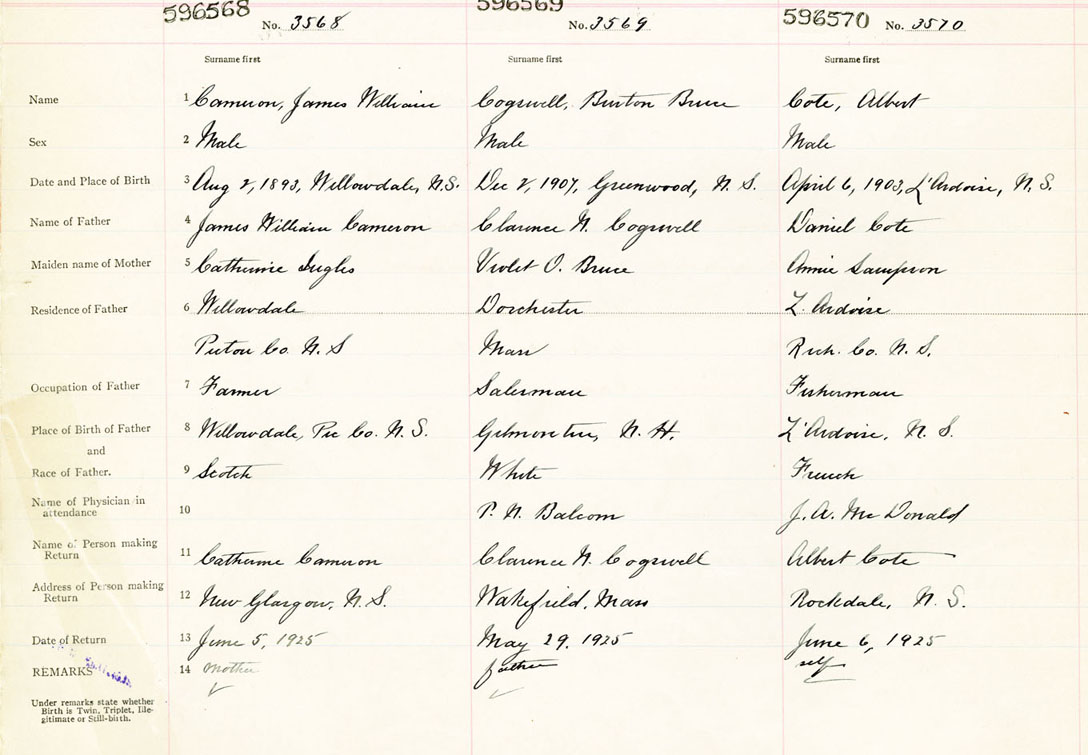 596568 No. 3568 596569 No. 3569 596570 No. 3570
Surname first Surname first Surname first
Name 1 Cameron, James William Cogswell, Burton Bruce Cote, Albert
Sex 2 Male Male Male
Date and Place of Birth 3 Aug 2, 1893, Willowdale, N.S. Dec 2, 1907, Greenwood, N.S. April 6, 1903, L'Ardoise, N.S.
Name of Father 4 James William Cameron Clarence N. Cogswell Daniel Cote
Maiden name of Mother 5 Catherine Ingles Violet O. Bruce Annie Sampson
Residence of Father 6 Willowdale Dorchester L. Ardoise
Pictou Co. N.S Mass Rich. Co. N.S.
Occupation of Father 7 Farmer Salesman Fisherman
Place of Birth of Father 8 Willowdale, Pic Co. N.S. N.H. L'Ardoise, N.S.
and
Race of Father. 9 Scotch White French
Name of Physician in
attendance 10 P. N. Balcom J. A. McDonald
Name of Person making
Return 11 Catherine Cameron Clarence N. Cogswell Albert Cote
Address of Person making
Return 12 New Glasgow, N.S. Wakefield, Mass Rockdale, N.S.
Date of Return 13 June 5, 1925 May 29, 1925 June 6, 1925
REMARKS 14 mother father self
Under remarks state whether
Birth is Twin, Triplet, Ille-
gitimate or Still-birth.